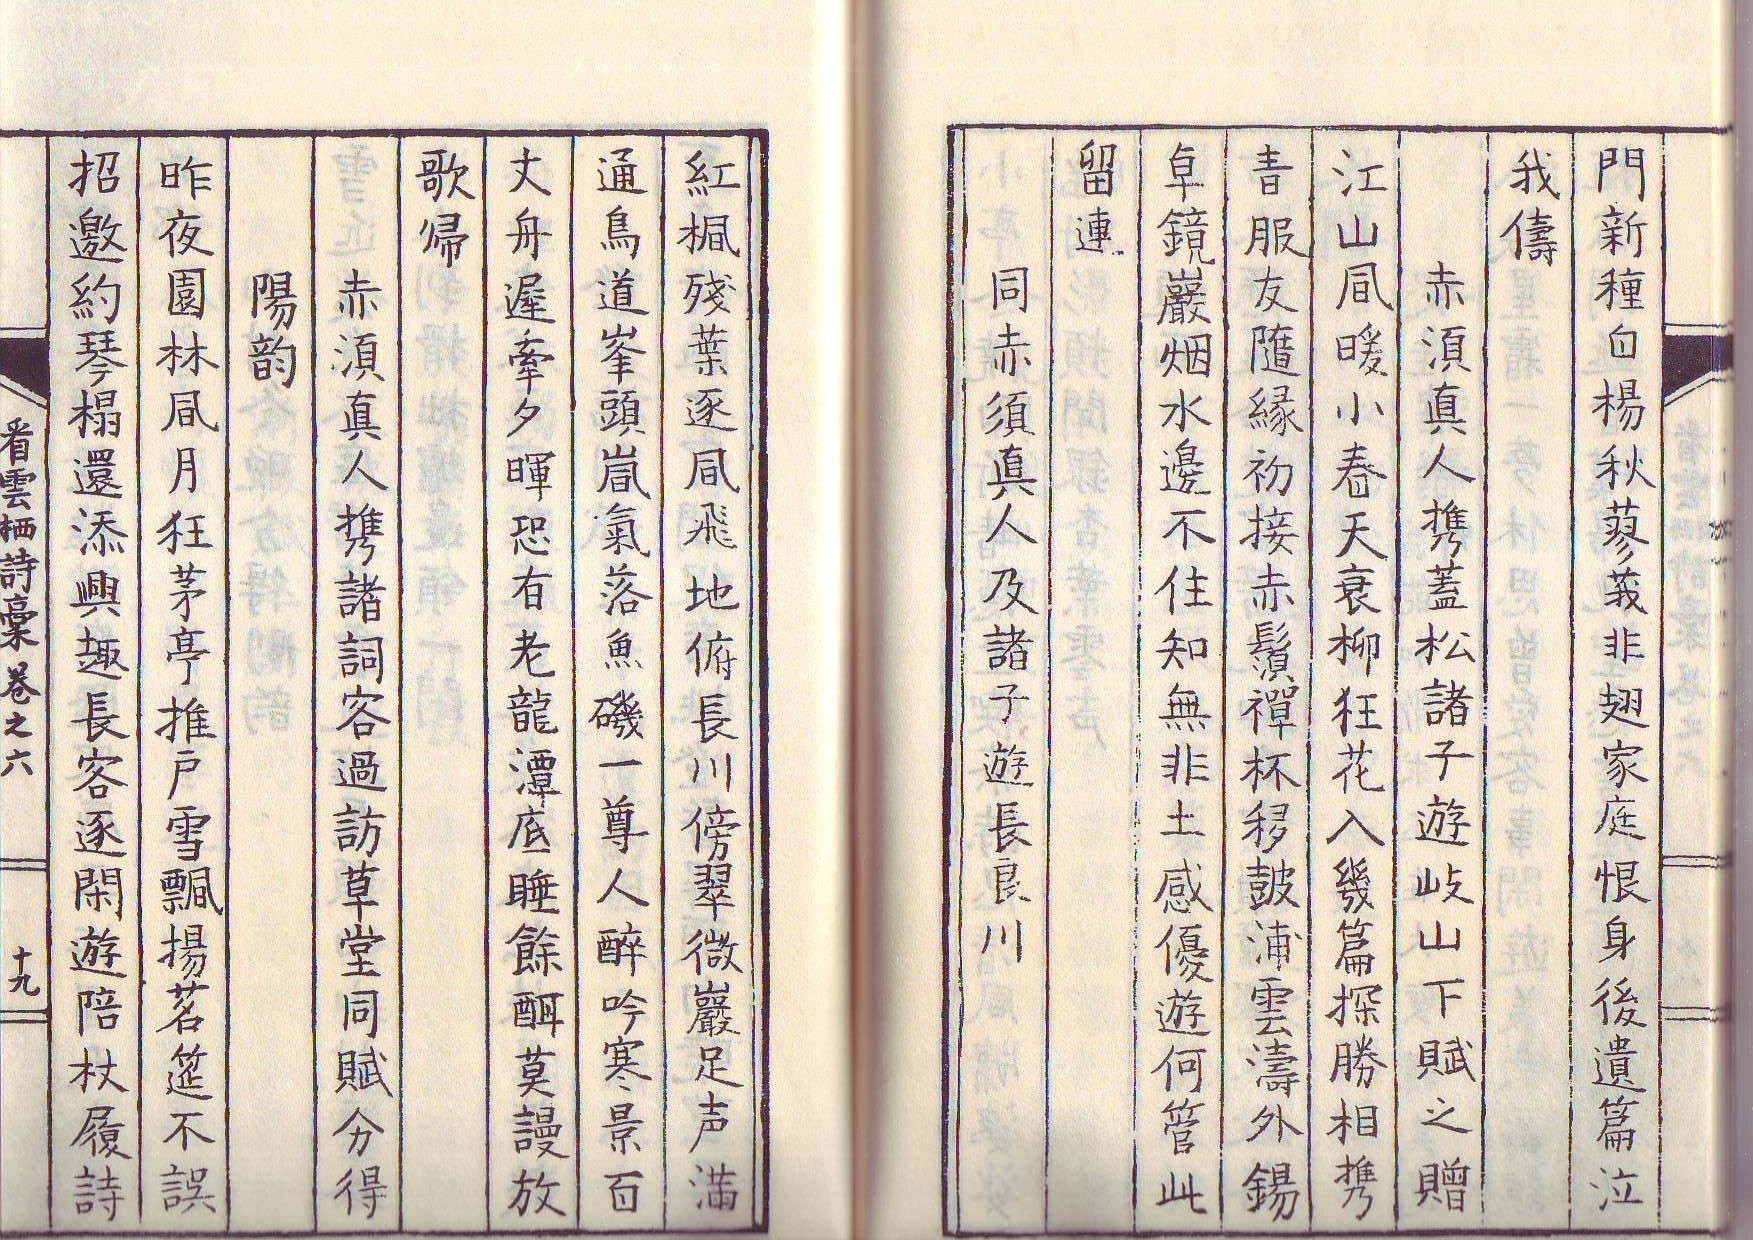 門新種白楊秋蓼莪非翅家庭恨身後遺篇泣
我儔
赤須真人携蓋松諸子遊岐山下賦之贈
江山凬暖小春天衰柳狂花入幾篇探勝相携
青服友隨縁初接赤鬚禪杯移鼓浦雲濤外錫
卓鏡巖烟水邊不住知無非土感優遊何管此
留連
同赤須真人及諸子遊長良川
紅楓殘葉逐凬飛地俯長川傍翠微巖足声満
通鳥道峯頭嵐氣落魚磯一尊人醉吟寒景百
丈舟遅牽夕暉恐有老龍潭底睡餘酣莫謾放
歌帰
赤須真人携諸詞客過訪草堂同賦分得
陽韵
昨夜園林凬月狂茅亭推户雪飄揚茗筵不誤
招邀約琴榻還添興趣長客逐閑遊陪杖履詩
看雲栖詩稾卷之六
十九